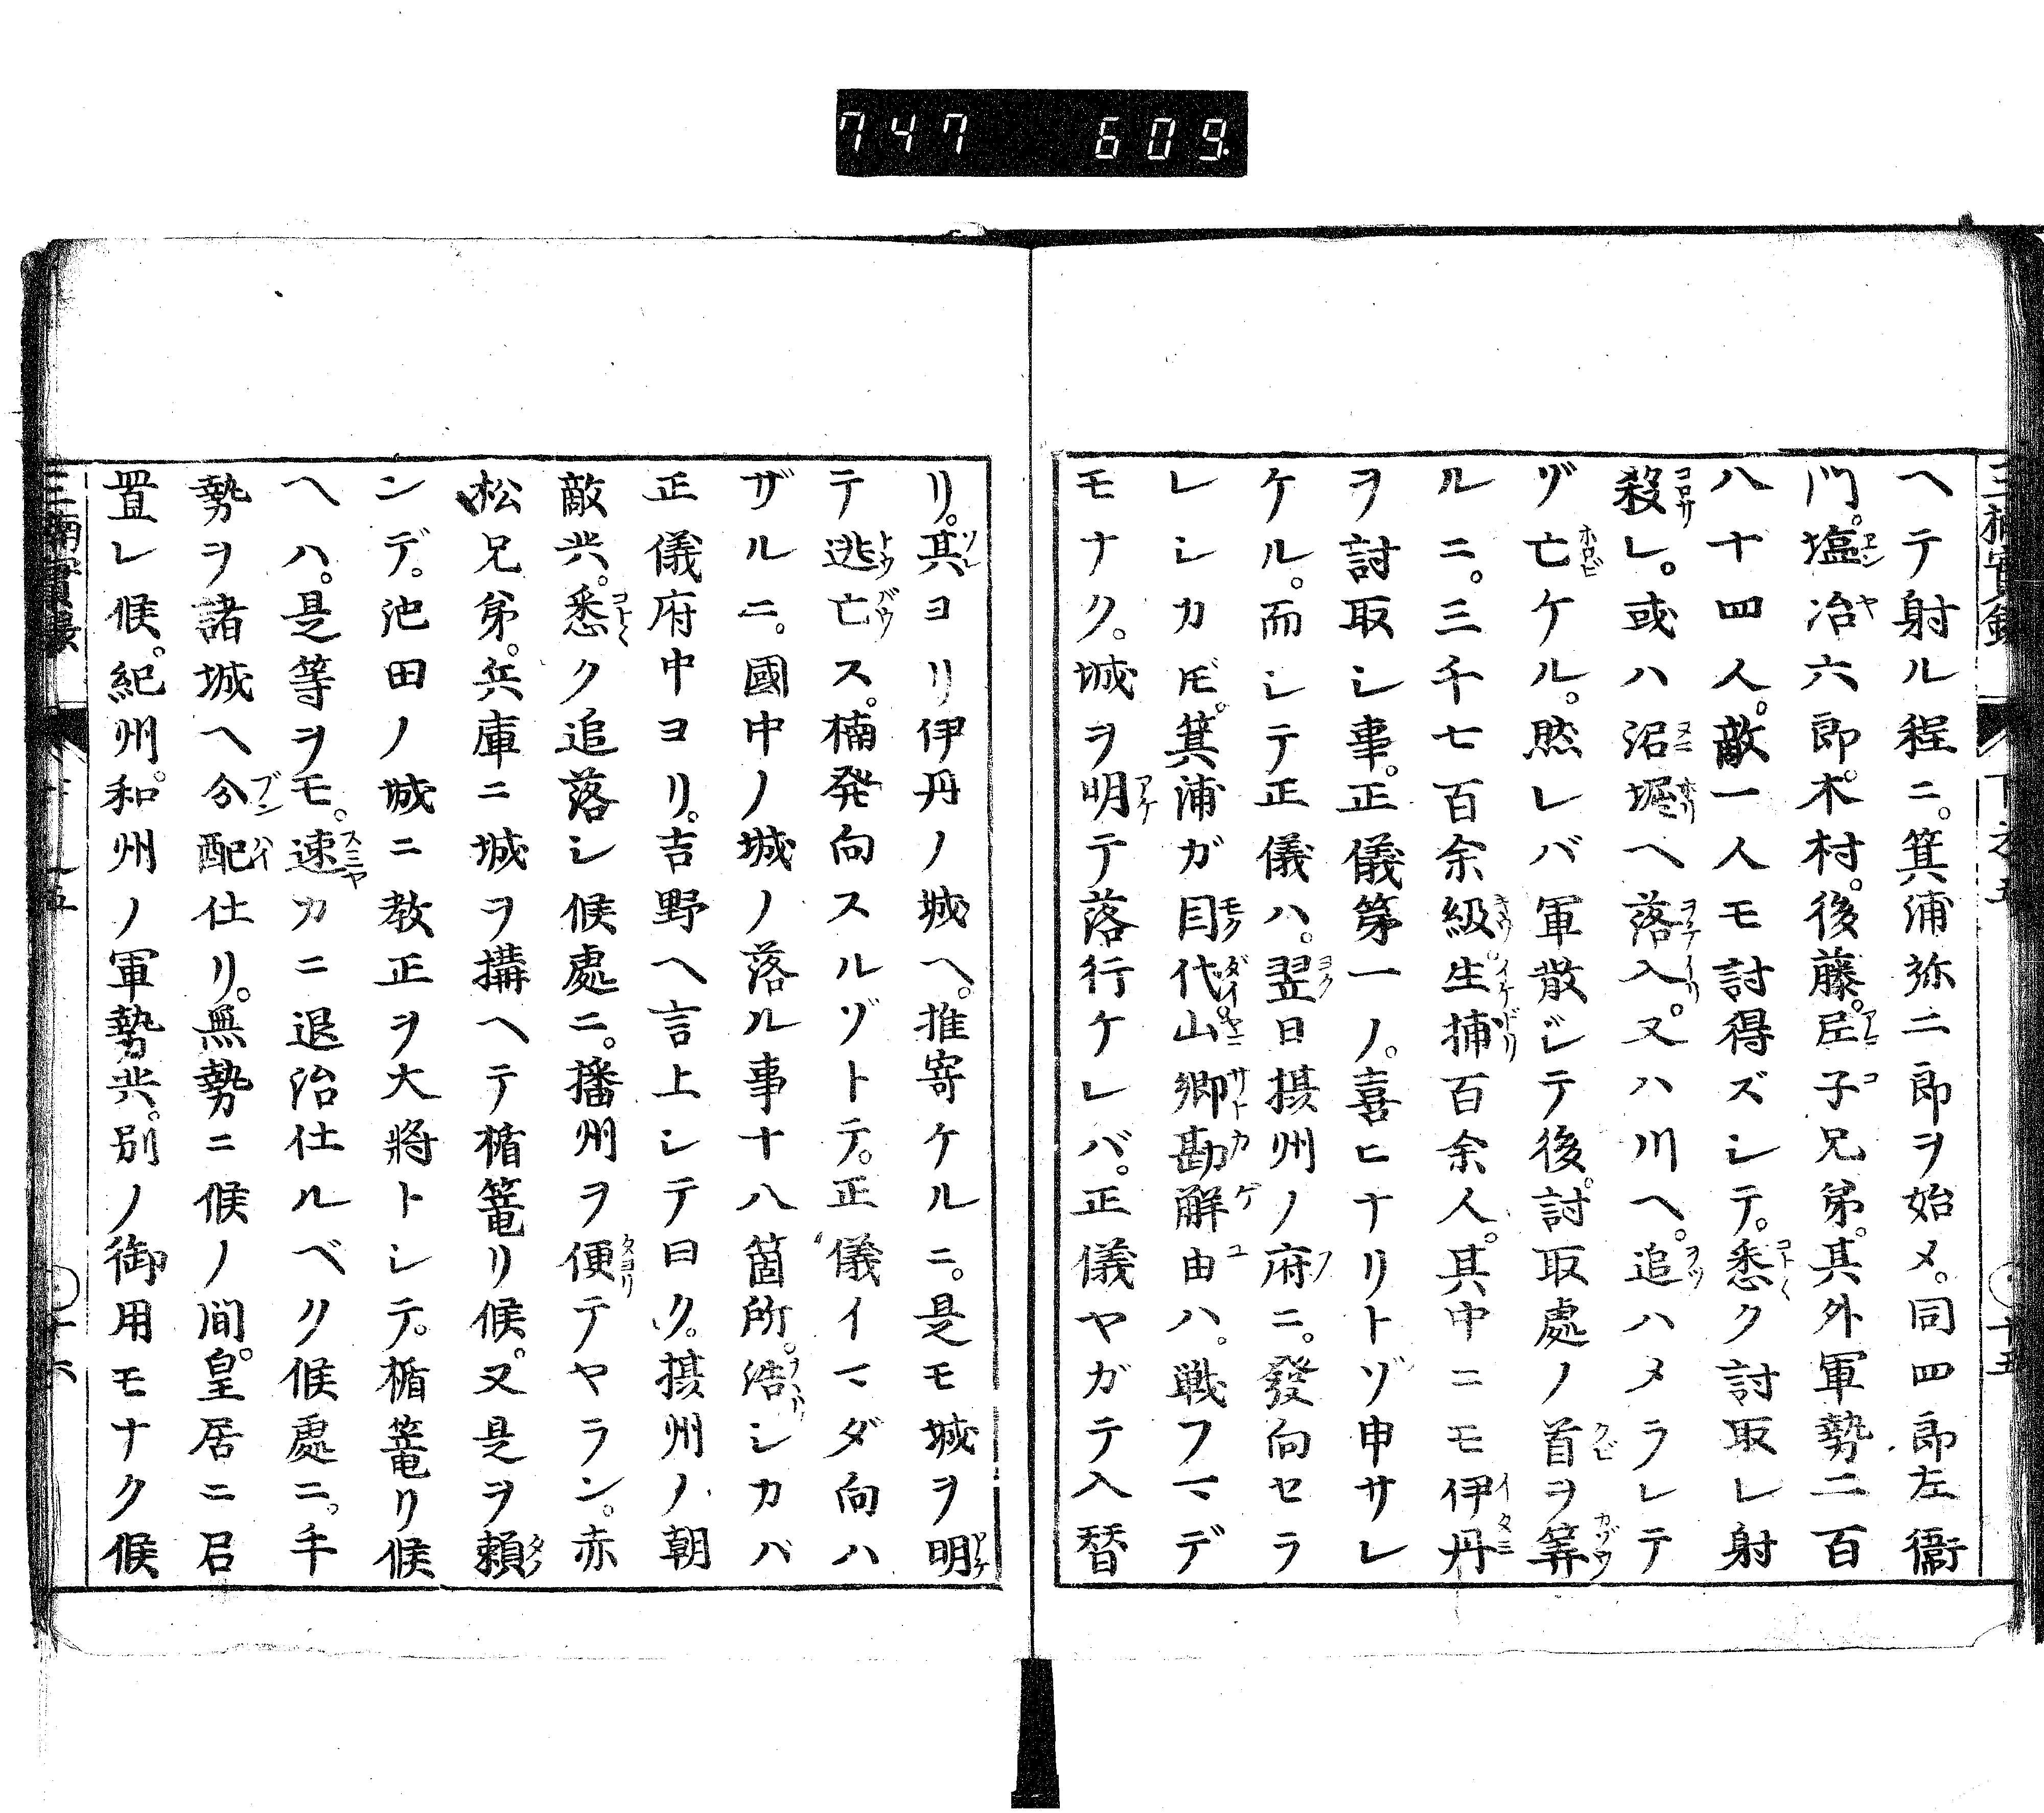 747 609
ヘテ射ル程ニ。箕浦弥二郎ヲ始メ。同四郎左衞
門。塩冶六郎。木村。後藤。𫝶子兄弟。其外軍勢二百
八十四人。敵一人モ討得ズシテ。悉ク討取レ射
殺レ。或ハ沼堀ヘ落入。又ハ川ヘ。追ハメラレテ
ゾ亡ケル。然レバ軍散ジテ後。討取處ノ首ヲ筭
ルニ。三千七百余級。生捕百余人。其中ニモ伊丹
ヲ討取シ事。正儀第一ノ。喜ヒナリトゾ申サレ
ケル。而シテ正儀ハ。翌日摂州ノ府ニ。發向セラ
レシカドモ。箕浦ガ目代。山郷勘解由ハ。戦フマデ
モナク。城ヲ明テ落行ケレバ。正儀ヤガテ入替
リ。其ヨリ伊丹ノ城ヘ。推寄ケルニ。是モ城ヲ明
テ逃亡ス。楠発向スルゾトテ。正儀イマダ向ハ
ザルニ。國中ノ城ノ落ル事十八箇所。浩シカバ
正儀府中ヨリ。吉野ヘ言上シテ曰ク。摂州ノ朝
敵共。悉ク追落シ候處ニ。播州ヲ便テヤラン。赤
松兄弟。兵庫ニ城ヲ搆ヘテ楯篭リ候。又是ヲ頼
ンデ。池田ノ城ニ教正ヲ大將トシテ。楯篭リ候
ヘハ。是等ヲモ。速カニ退治仕ルベク候處ニ。手
勢ヲ諸城ヘ分配仕リ。無勢ニ候ノ間。皇居ニ召
置レ候。紀州。和州ノ軍勢共。別ノ御用モナク候